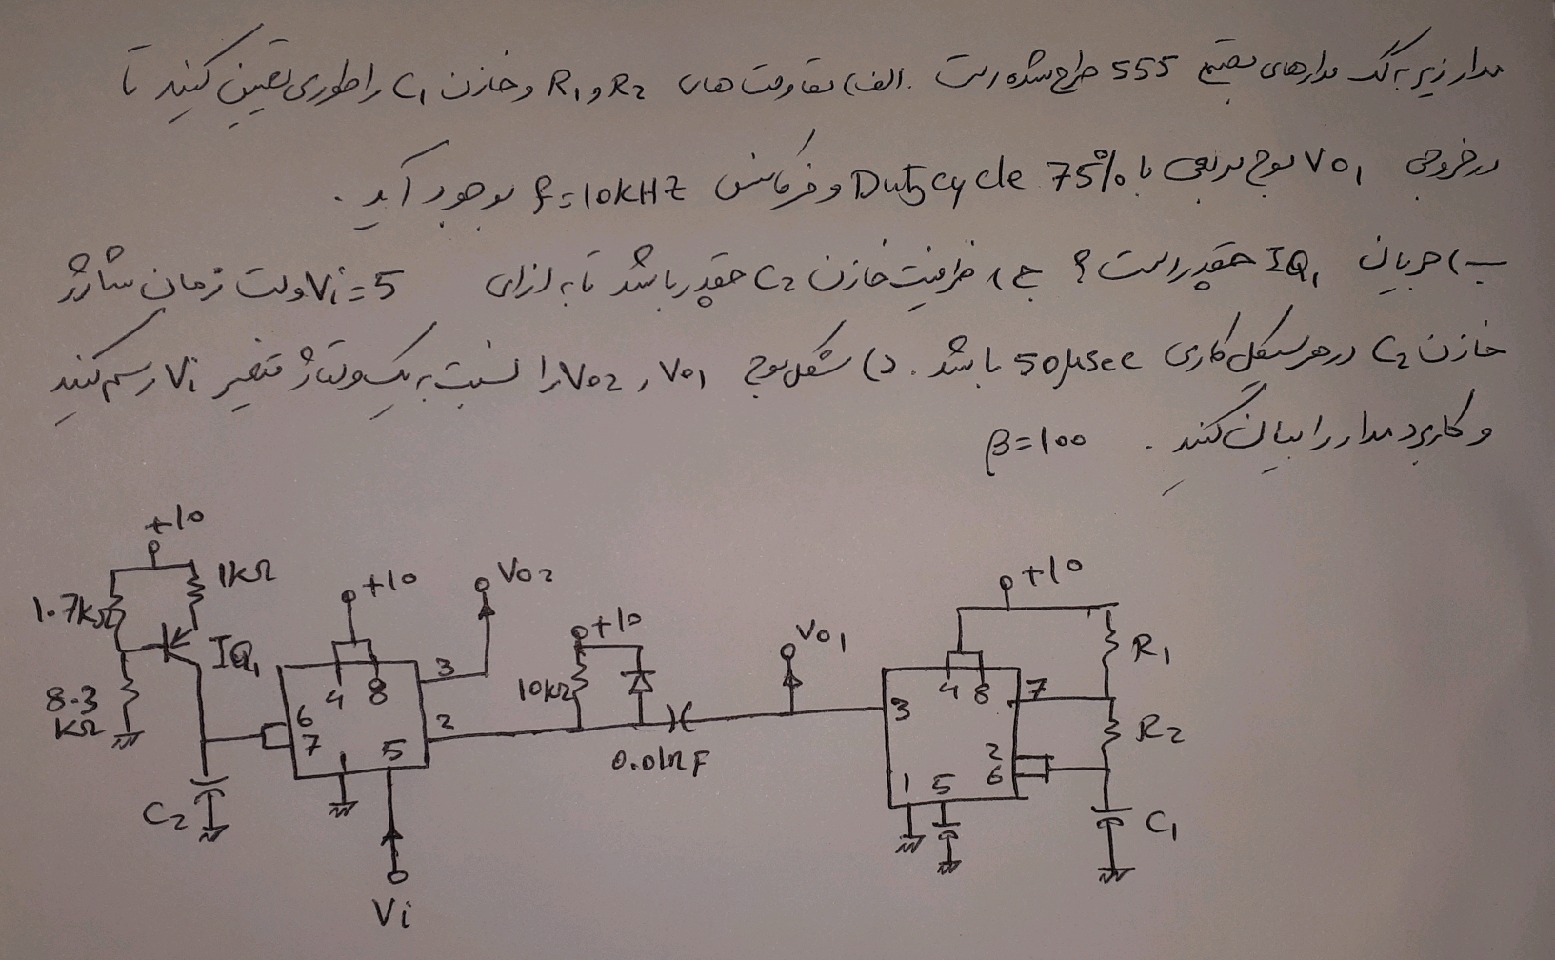 مدار زیر به کمک مدارهای مجتمع 555 طرح شده است. الف) مقاومت های R1 و R2 و خازن C1 را طوری تعیین کنید تا
در خروجی Vo1 موج مربعی با Duty cycle 75% و فرکانس f=10kHz بوجود آید.
ب) جریان IQ1 چقدر است؟ ج) ظرفیت خازن C2 چقدر باشد تا به ازای Vi=5 ولت زمان شارژ
خازن C2 در هر سیکل کاری 50μsec باشد. د) شکل موج Vo1 و Vo2 را نسبت به یک ولتاژ متغیر Vi رسم کنید
و کاربرد مدار را بیان کنید. β=100
+10
1kΩ
1.7kΩ
IQ1
8.3
kΩ
C2
+10
Vo2
4 8
3
6
7
2
5
Vi
+10
10kΩ
0.01nF
Vo1
+10
R1
4 8
7
3
R2
2
6
1 5
C1